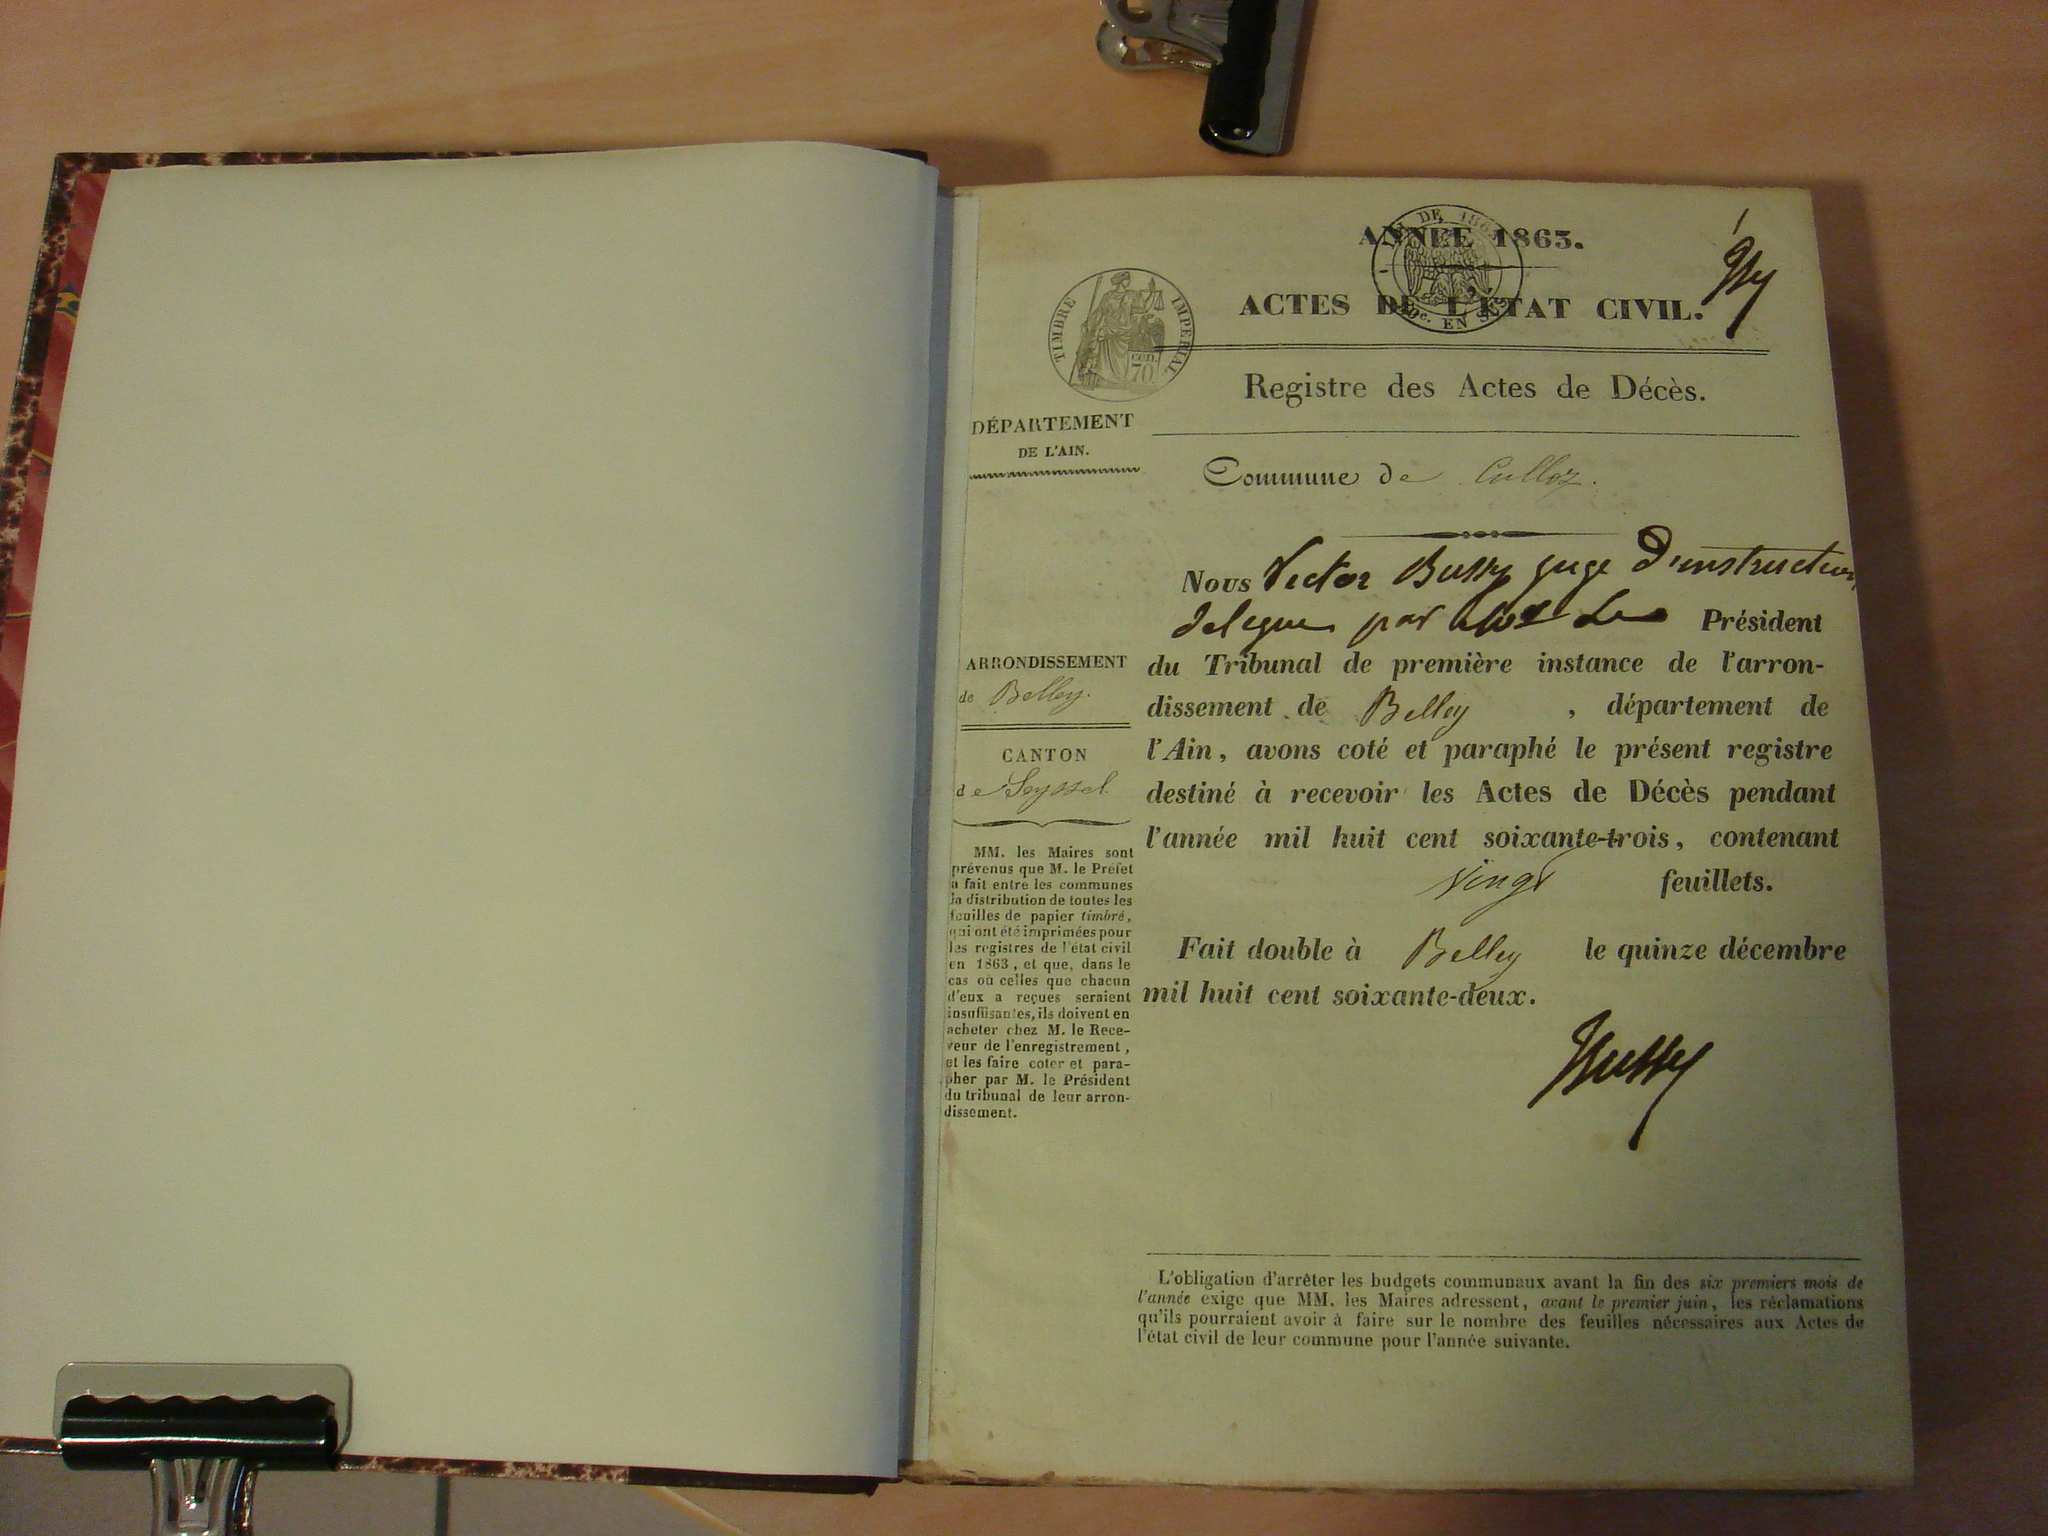 ANNÉE 1863.
ACTES DE L'ÉTAT CIVIL.
TIMBRE IMPERIAL
CEN. 70
Registre des Actes de Décès.
DÉPARTEMENT
DE L'AIN.
Commune de Culloz.
ARRONDISSEMENT
de Belley.
CANTON
de Seyssel.
MM. les Maires sont
prévenus que M. le Préfet
a fait entre les communes
la distribution de toutes les
feuilles de papier timbré,
qui ont été imprimées pour
les registres de l'état civil
en 1863, et que, dans le
cas où celles que chacun
d'eux a reçues seraient
insuffisantes, ils doivent en
acheter chez M. le Rece-
veur de l'enregistrement,
et les faire coter et para-
pher par M. le Président
du tribunal de leur arron-
dissement.
Nous Victor Bussy juge D'instruction
délégué par Mr Le Président
du Tribunal de première instance de l'arron-
dissement de Belley, département de
l'Ain, avons coté et paraphé le présent registre
destiné à recevoir les Actes de Décès pendant
l'année mil huit cent soixante-trois, contenant
vingt feuillets.
Fait double à Belley le quinze décembre
mil huit cent soixante-deux.
Bussy
L'obligation d'arrêter les budgets communaux avant la fin des six premiers mois de
l'année exige que MM. les Maires adressent, avant le premier juin, les réclamations
qu'ils pourraient avoir à faire sur le nombre des feuilles nécessaires aux Actes de
l'état civil de leur commune pour l'année suivante.